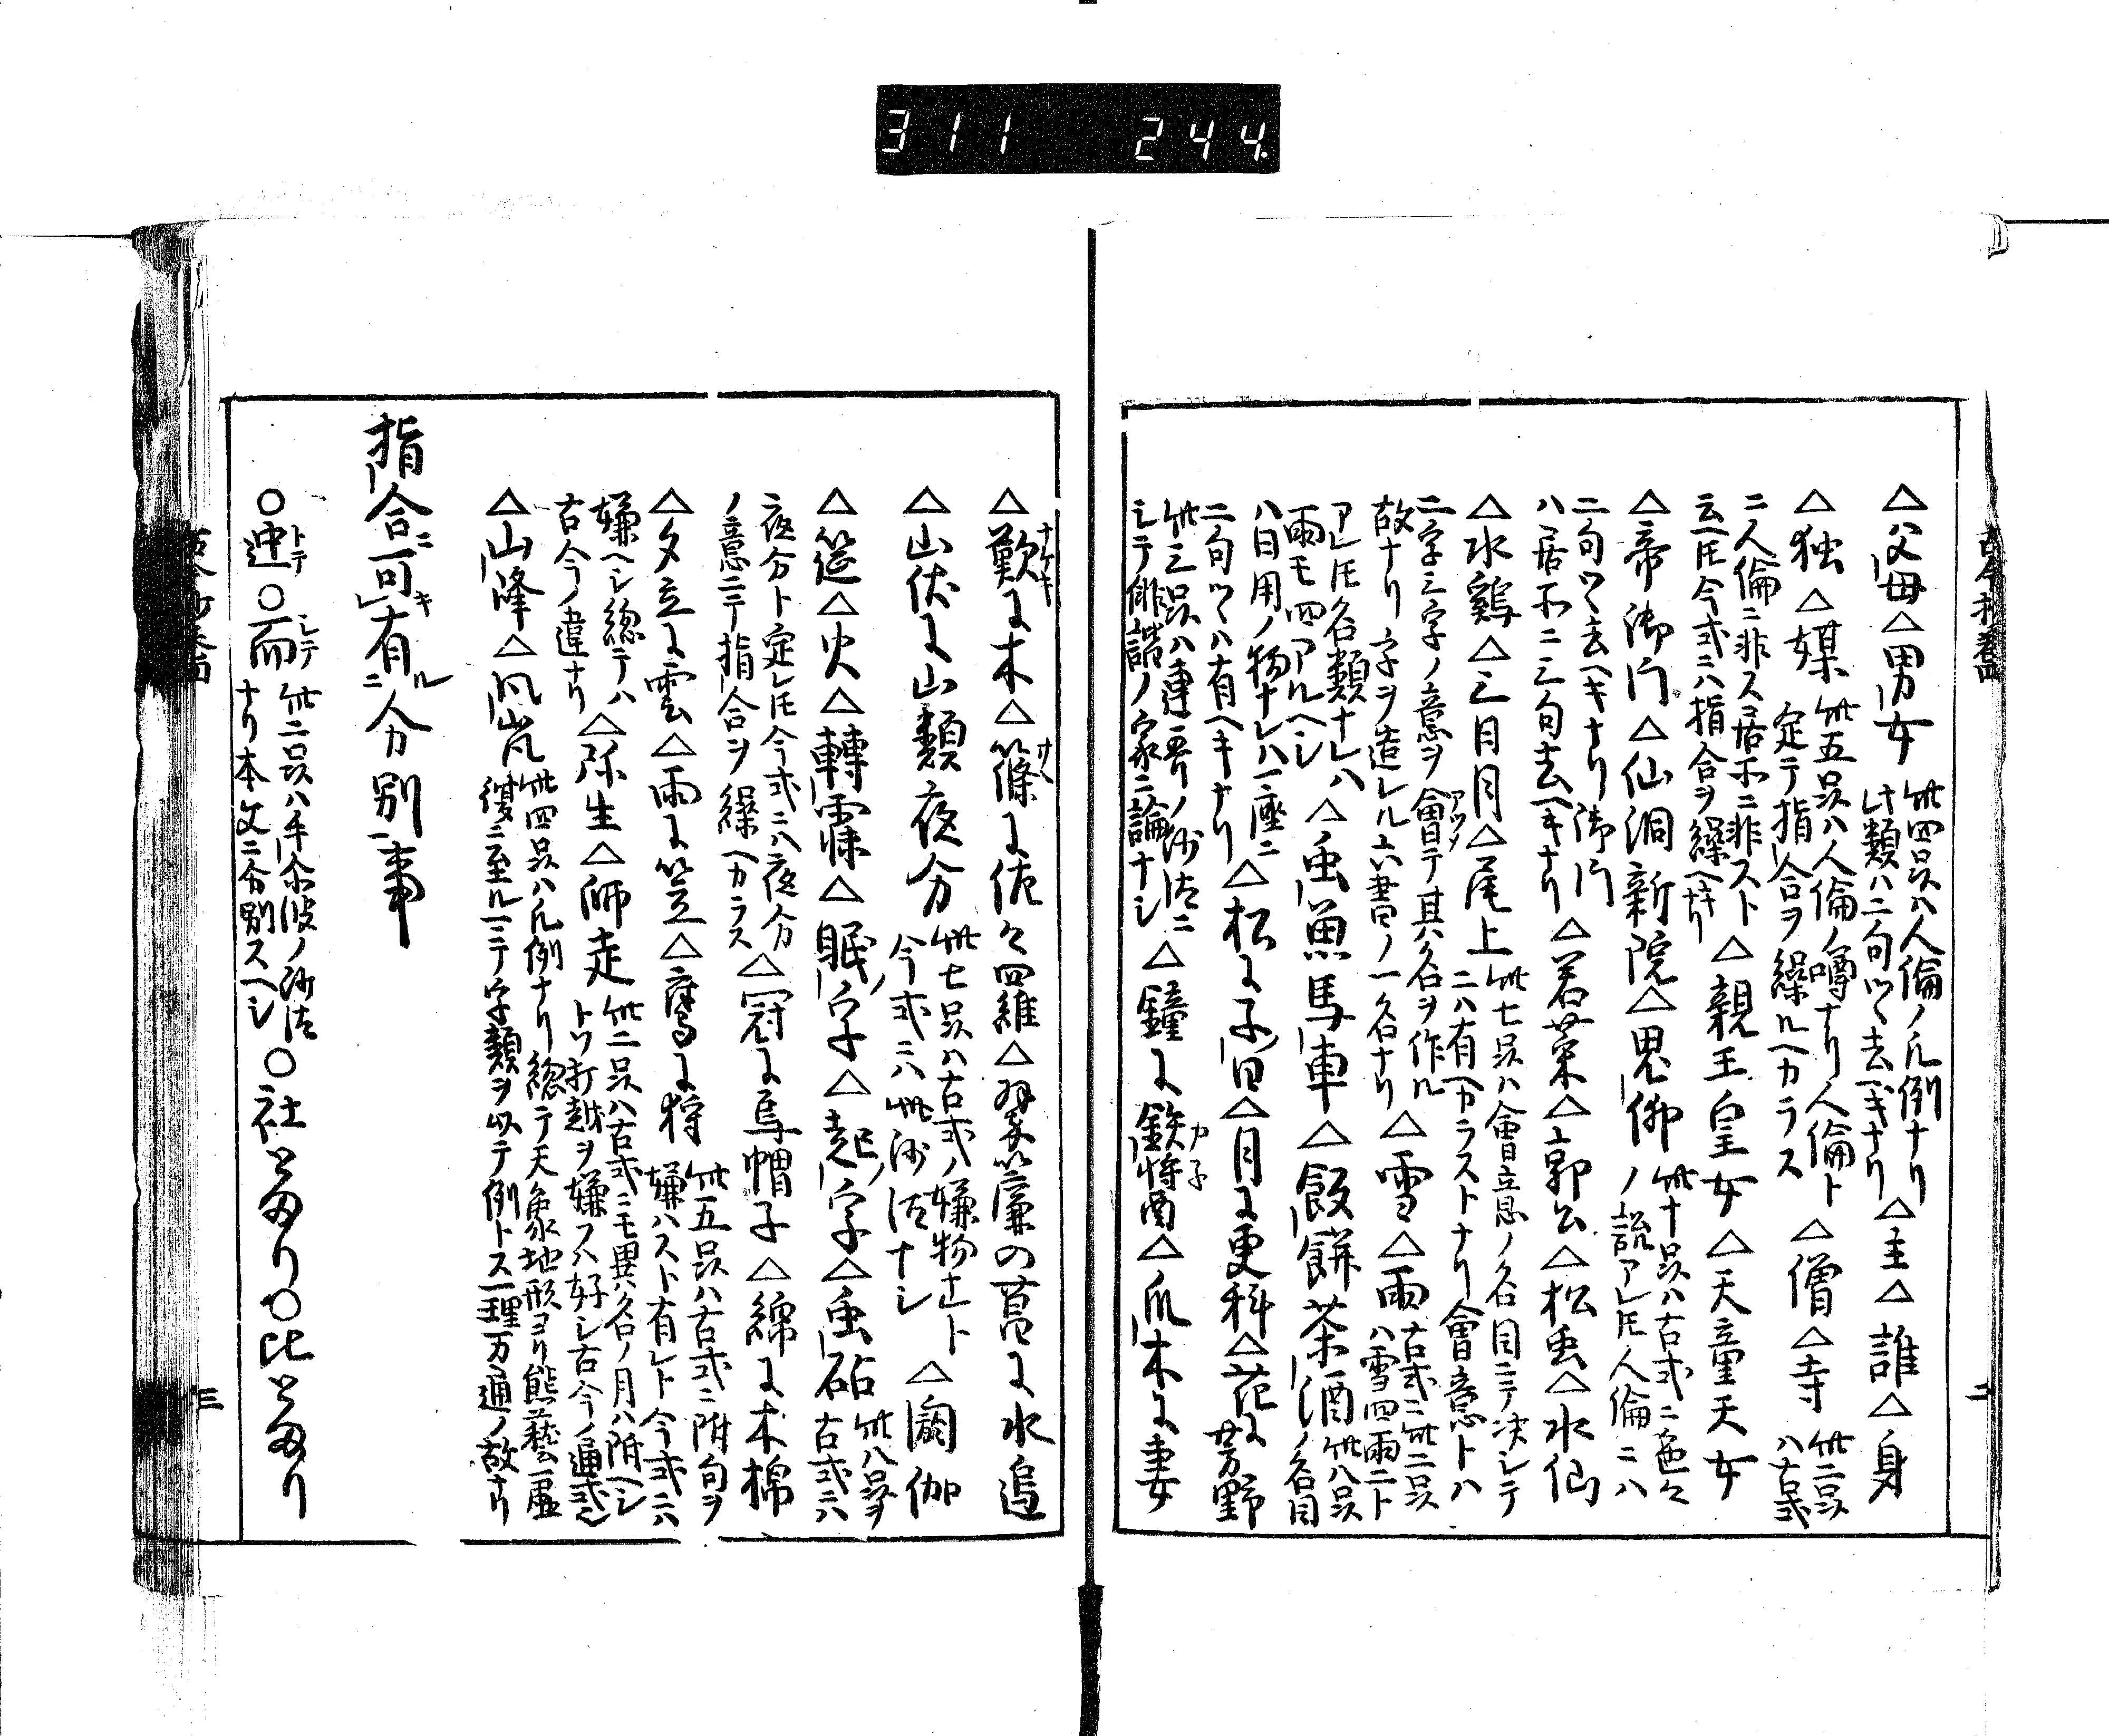 311 244
△父母△男女 此四品ハ人倫ノ凡例ナリ
此類ハ二句ツヽ去ヘキナリ △主△誰△身
△独△媒 此五品ハ人倫ノ噂ナリ人倫ト
定テ指合ヲ繰ルヘカラス △僧△寺 此二品
ハ古式
ニ人倫ニ非ス居所ニ非スト
云ヘ𪜈今式ニハ指合ヲ繰ヘキナリ △親王皇女△天童天女
△帝御門△仙洞新院△鬼仏 此十品ハ古式ニ色々
ノ説アレ𪜈人倫ニハ
二句ツヽ去ヘキナリ御門
ハ居所ニ三句去ヘキナリ △若菜△郭公△松虫△水仙
△水鶏△三日月△尾上 此七品ハ會意ノ名目ニテ決シテ
二ハ有ヘカラストナリ會意トハ
二字三字ノ意ヲ會テ其名ヲ作ル
故ナリ字ヲ造レル六書ノ一名ナリ △雪△雨 古式ニ此二品
ハ雪四雨二ト
アレ𪜈名類ナレハ
雨モ四アルヘシ △虫魚馬車△飯餅茶酒 此八品
ノ名目
ハ日用ノ物ナレハ一座ニ
二句ツヽハ有ヘキナリ △松に子日△月に更科△花に芳野
此三品ハ連哥ノ沙汰ニ
シテ俳諧ノ家ニ論ナシ △鐘に鉄将△爪木に妻
△歎に木△篠に佐々四維△翠簾の莒に水
△山伏に山類夜分 此七品ハ古式ノ嫌物ナレト
今式ニハ此沙汰ナシ △閼伽
△筵△火△轉寐△眠ノ字△起ノ字△虫△砧 此八品ヲ
古式ニハ
夜分ト定レ𪜈今式ニハ夜分
ノ意ニテ指合ヲ繰ヘカラス △冠に烏帽子△綿に木棉
△夕立に雲△雨に笠△鷹に狩 此五品ハ古式ニ附句ヲ
嫌ハスト有レト今式ニハ
嫌ヘシ總テハ
古今ノ違ナリ △弥生△師走 此二品ハ古式ニモ異名ノ月ハ附ヘシ
トソ打越ヲ嫌フハ好シ古今ノ通式也
△山峰△風嵐 此四品ハ凡例ナリ總テ天象地形ヨリ
ニ至ルマテ字類ヲ以テ例トス一理万通ノ故ナリ
指合可有分別事
○迚○而 此二品ハ手尓波ノ沙汰
ナリ本文ニ分別スヘシ ○社とまり○比とまり
二
三